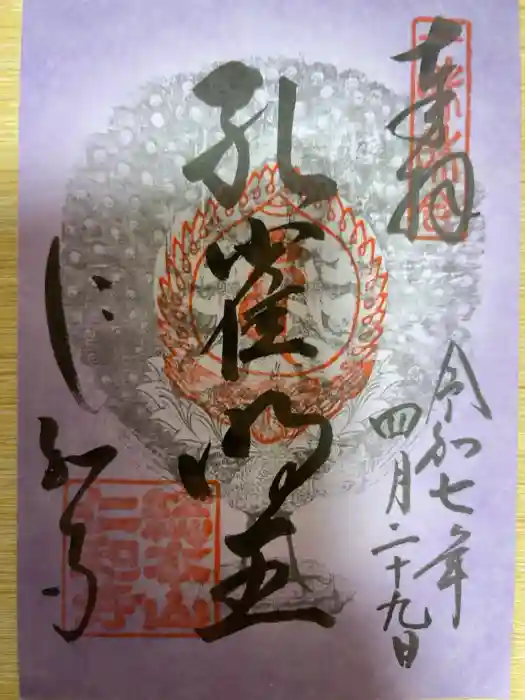 奉拝
令和七年
四月二十九日
孔雀明王
仁和寺